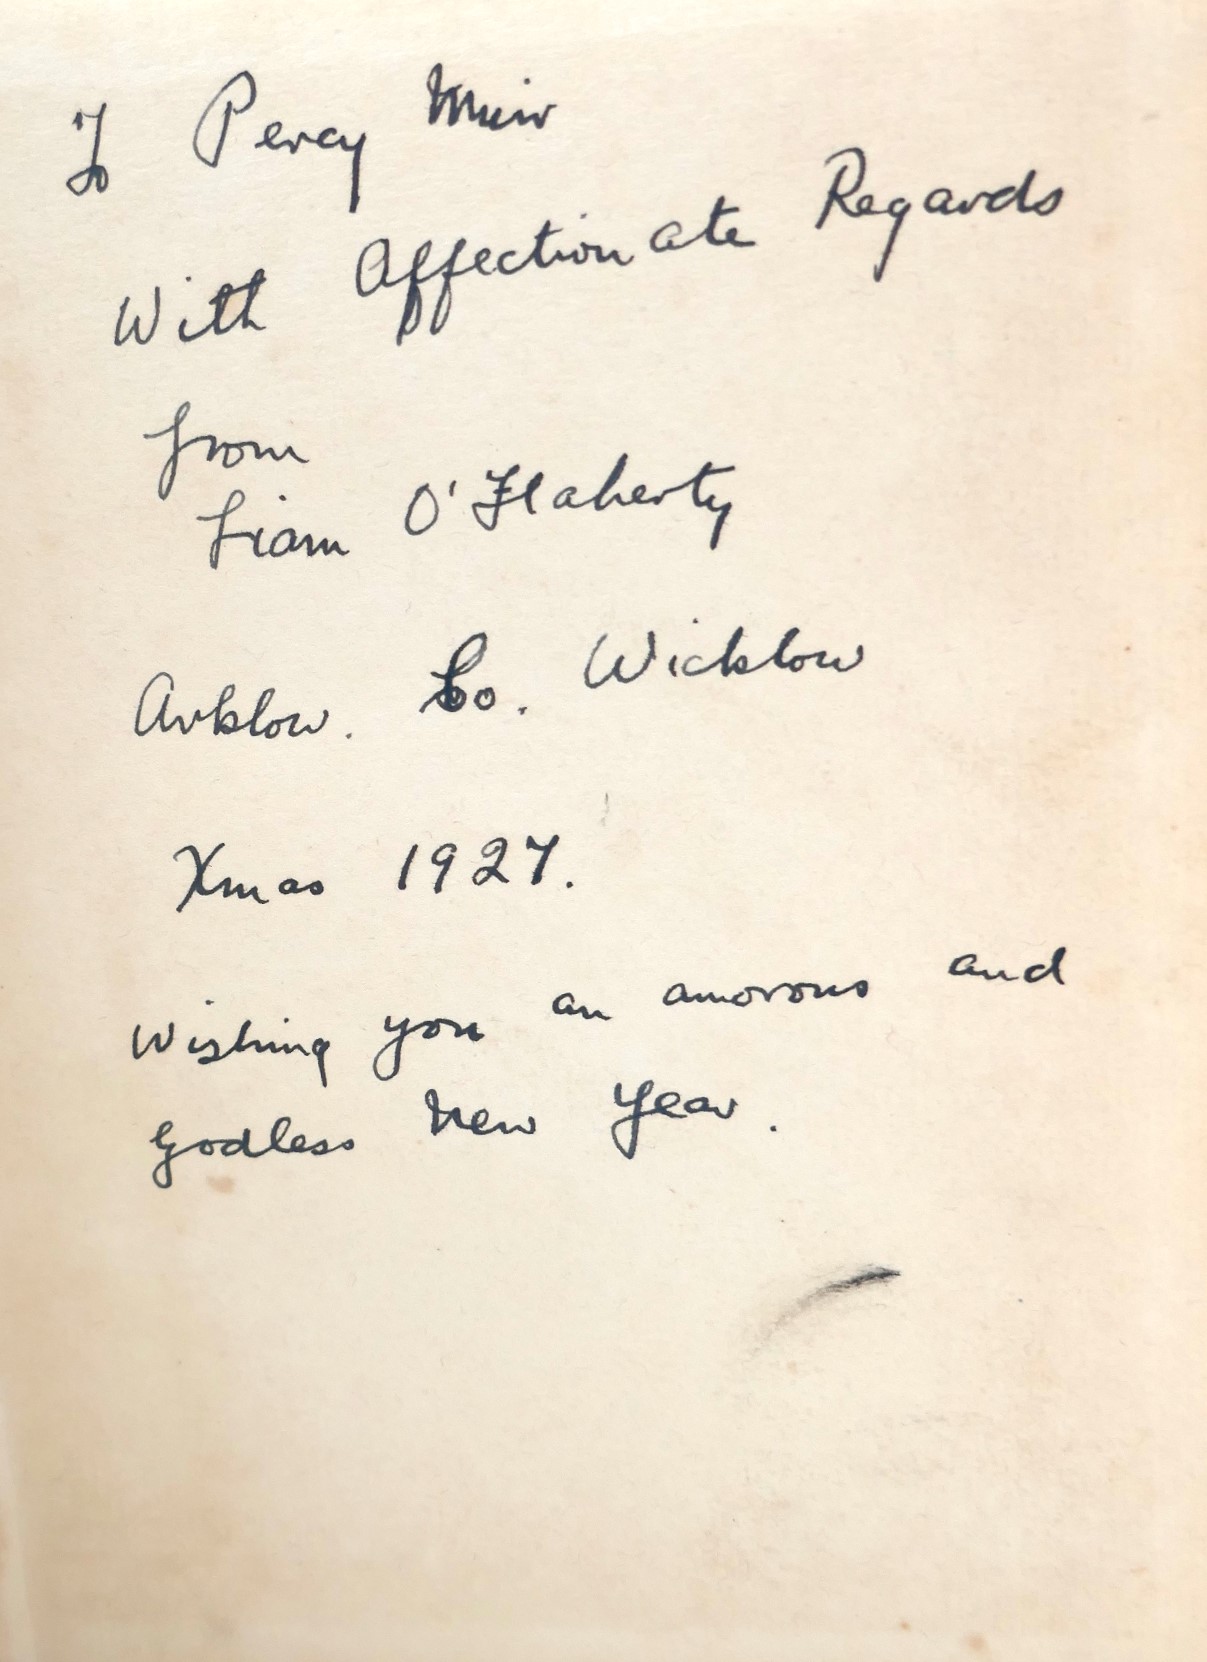 To Percy Muir
With Affectionate Regards
from
Liam O'Flaherty
Arklow. Co. Wicklow
Xmas 1927.
Wishing you an amorous and
Godless New Year.